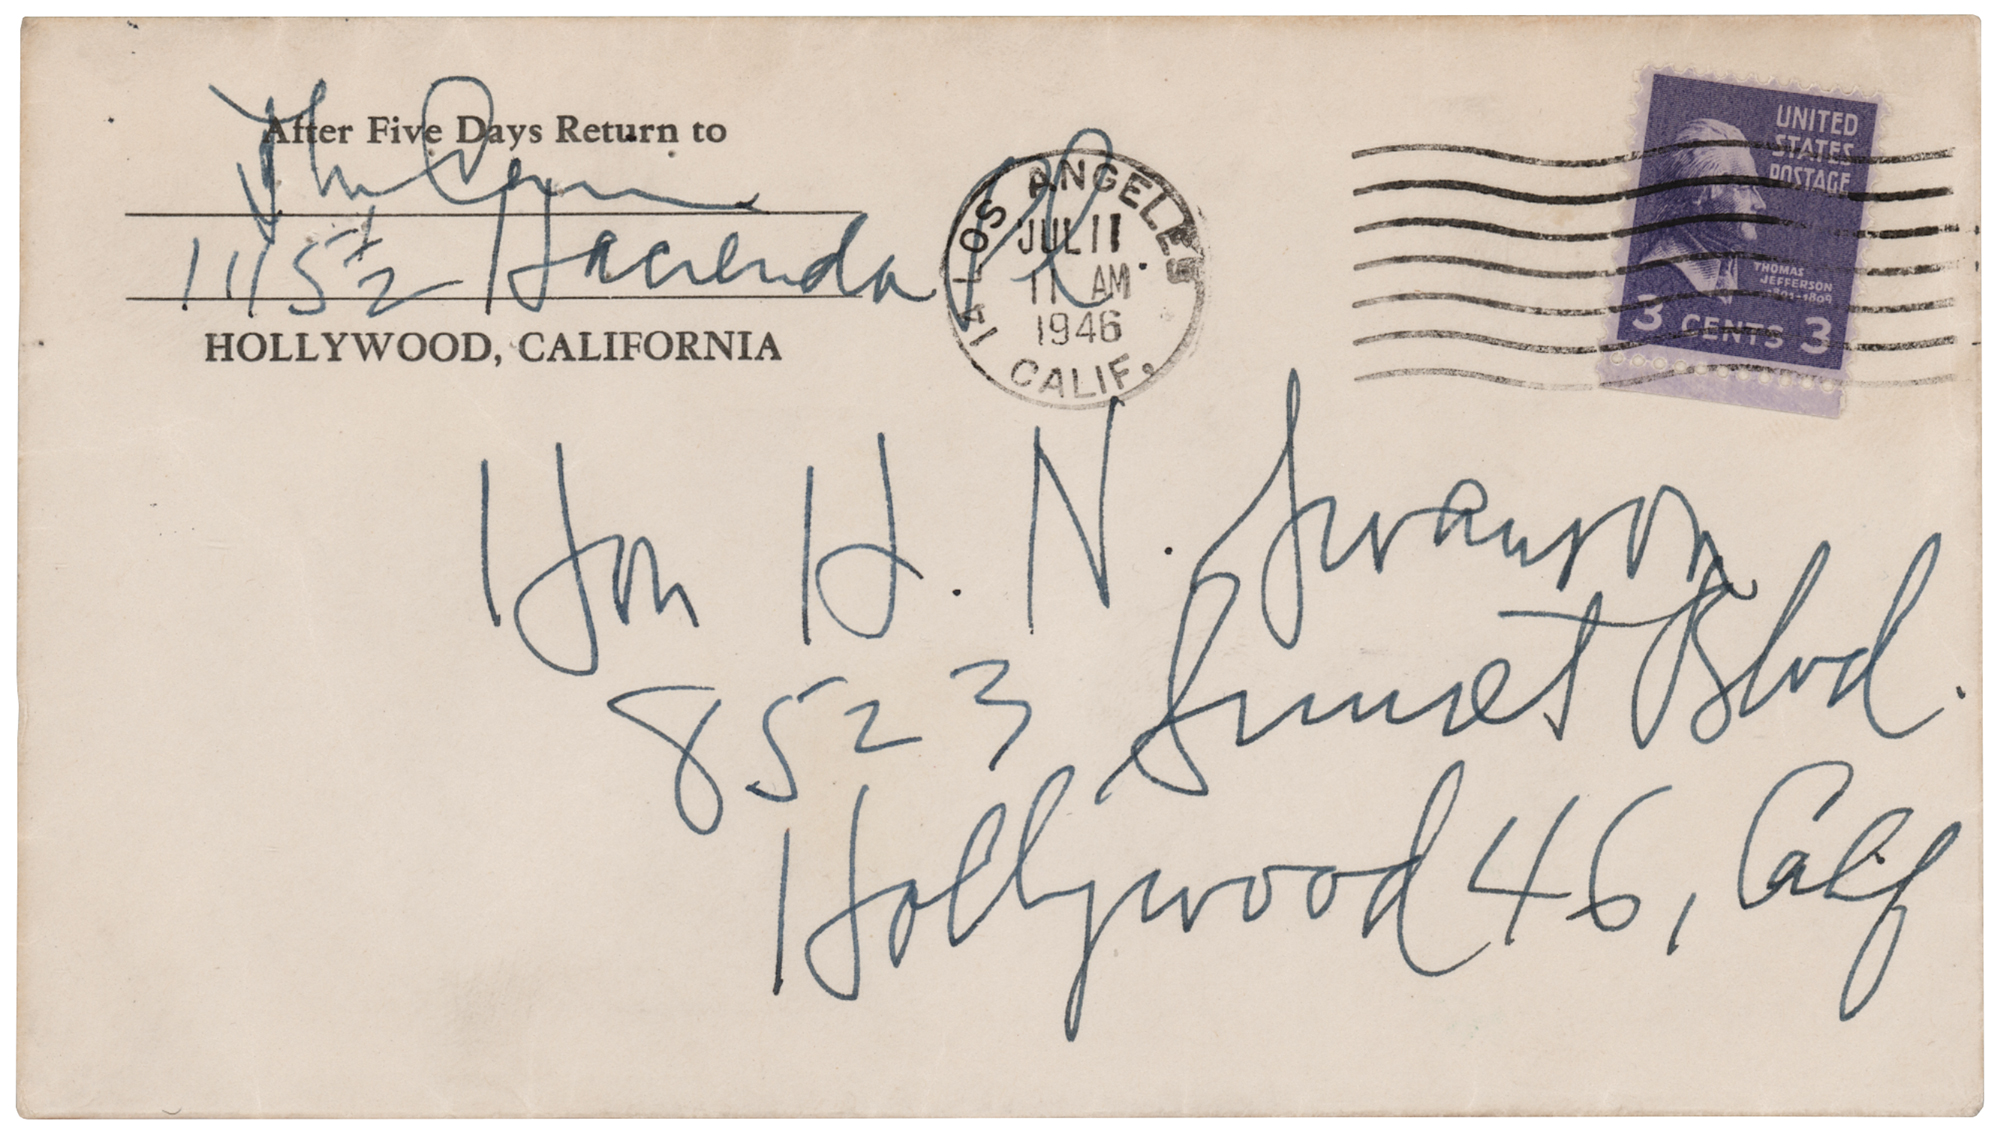 After Five Days Return to
1115 1/2 Hacienda Pl
HOLLYWOOD, CALIFORNIA
LOS ANGELES 14 CALIF.
JUL 11
11 AM
1946
UNITED
STATES
POSTAGE
THOMAS
JEFFERSON
1801-1809
3 CENTS 3
Hon H. N. Swanson
8523 Sunset Blvd.
Hollywood 46, Calif